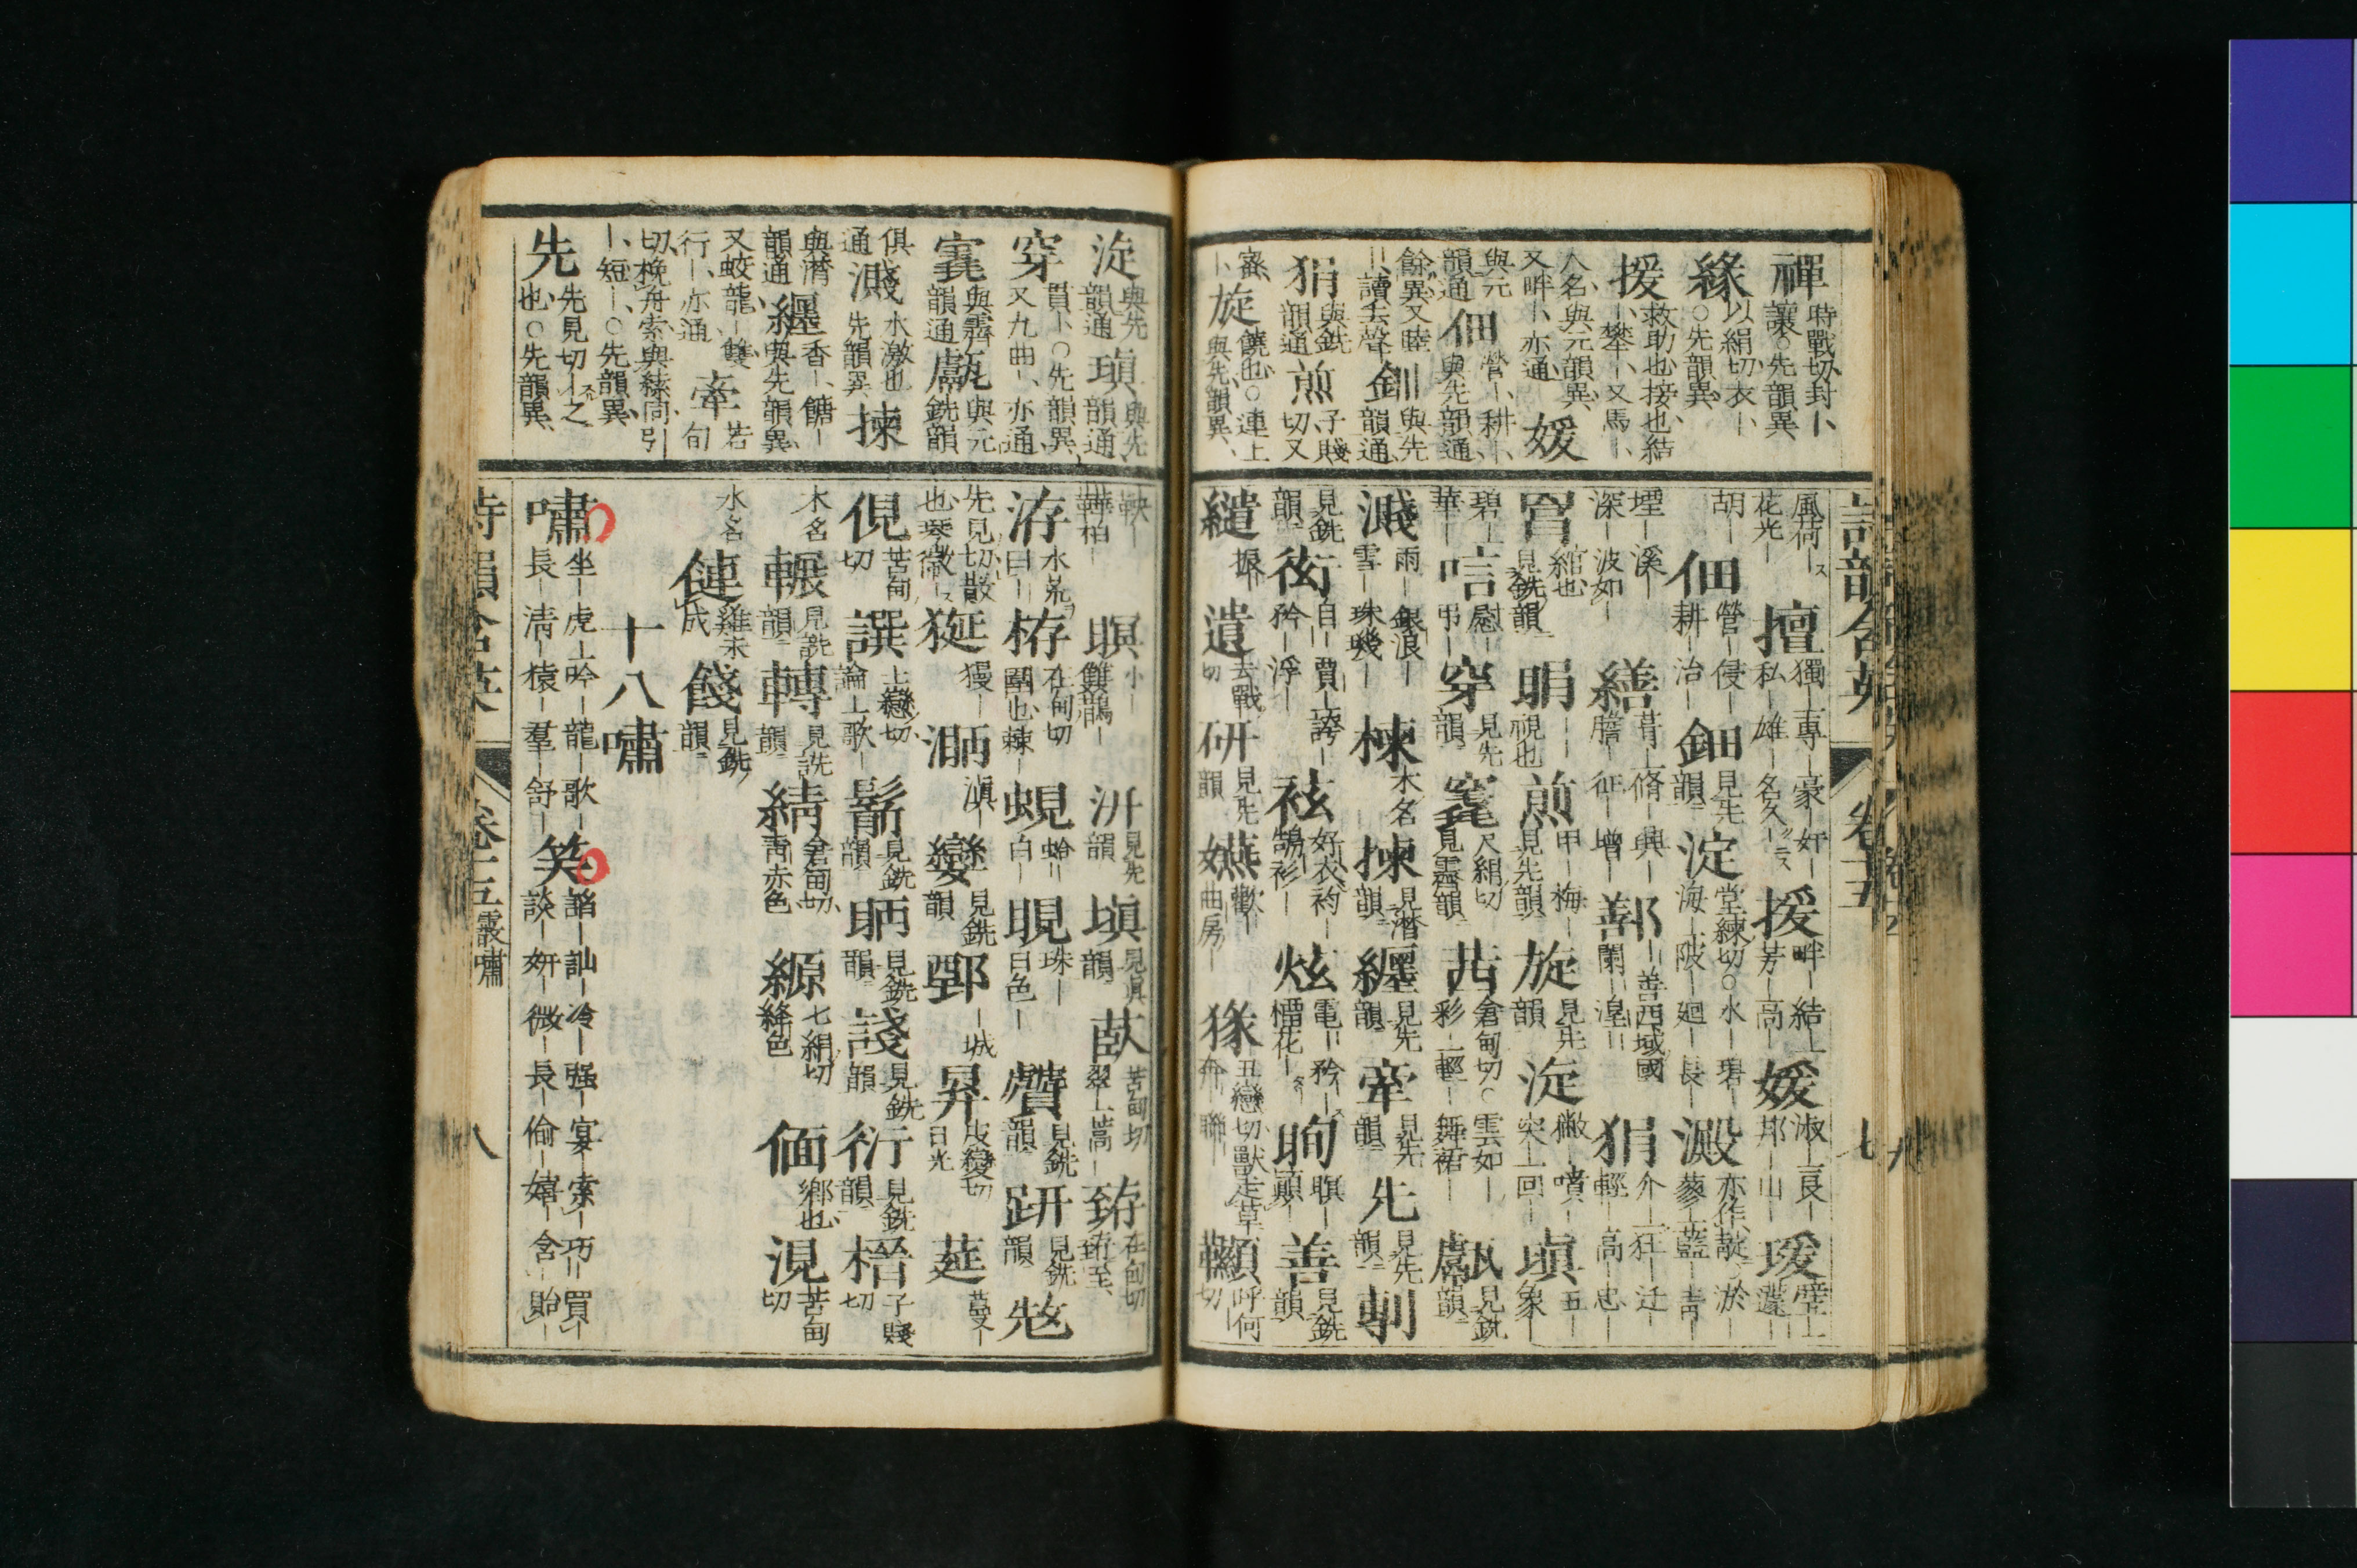 禪時戰切封丨讓○先韻異
緣以絹切衣丨○先韻異
援救助也接也結丨攀丨又馬丨人名與元韻異又畔丨亦通
媛與元韻通
佃營丨耕丨與先韻通
餘異又睦丨丨讀去聲
釧與先韻通
狷與銑韻通
煎子賤切又密丨
旋饒也○連上丨與先韻異
詩韻含英
卷十五
風荷丨花光丨
擅獨丨專丨豪丨奸丨私丨雄丨名久丨
援畔丨結丨芳丨高丨
媛淑丨良丨邦丨山丨
瑗璧丨蘧丨
胡丨
佃營丨侵丨耕丨治丨
鈿見先韻
淀堂練切○水丨碧丨海丨陂丨廻丨長丨
澱亦作靛丨淤丨蓼丨藍丨青丨
堙丨溪丨深丨波如丨
繕葺丨脩丨興丨膳丨征丨增丨
鄯丨善西域國闌丨湟丨
狷介丨狂丨迂丨輕丨高丨忠丨
罥綰也見銑韻
睊丨丨視也
煎甲丨梅丨見先韻
旋見先韻
淀撇丨噴丨突丨回丨
塡五丨象丨
碧丨華丨
唁慰丨弔丨
穿見先韻
竁尺絹切見霽韻
茜倉甸切○雲如丨彩丨輕丨舞裙丨
甗見銑韻
濺雨丨銀浪丨雪丨珠幾丨
楝木名
揀見潸韻
纏見先韻
牽見先韻
先見先韻
剸見銑韻
衒自丨賈丨誇丨矜丨浮丨
袨好衣丨袀丨鵠衫丨
炫電丨矜丨榴花丨
眴瞑丨顚丨
善見銑韻
繾振丨
遣去戰切
研見先韻
嬿歡丨曲房丨
猭丑戀切獸走草丨舟丨聯丨
韅呼何切
淀與先韻通
瑱與先韻通
穿貫丨○先韻異又九曲丨亦通
竁與霽韻通
甗與元銑韻俱通
濺水激也先韻異
揀與潸韻通
纏香丨餹丨與先韻異又蛟龍丨雙行丨亦通
牽苦甸切挽舟索與縴同引丨短丨○先韻異
先先見切丨之也○先韻異
鞅丨鞾柏丨
瞑小丨雙鵲丨
汧見先韻
塡見眞韻
菣苦甸切翠丨蒿丨
臶在甸切臶至
洊水荒丨曰丨
栫在甸切圍也棘丨
蜆蛤丨白丨
晛珠丨日色丨
贙見銑韻
趼見銑韻
先見切散也琴徽丨
狿獌丨
湎滇丨
孌見銑韻
鄄丨城
昪皮變切日光
莚蔓丨
俔苦甸切
譔上戀切論丨歌丨
鬋見銑韻
眄見銑韻
諓見銑韻
衍見銑韻
榗子賤切
木名
輾見銑韻
轉見銑韻
綪倉甸切靑赤色
縓七絹切絳色
偭鄉也
涀苦甸切
水名
健雞未成
餞見銑韻
十八嘯
嘯坐丨虎丨吟丨龍丨歌丨長丨淸丨猿丨羣丨舒丨
笑諧丨訕丨冷丨强丨宴丨索丨巧丨買丨談丨姸丨微丨長丨偷丨嬉丨含丨貽丨
詩韻含英
卷十五
霰嘯
八